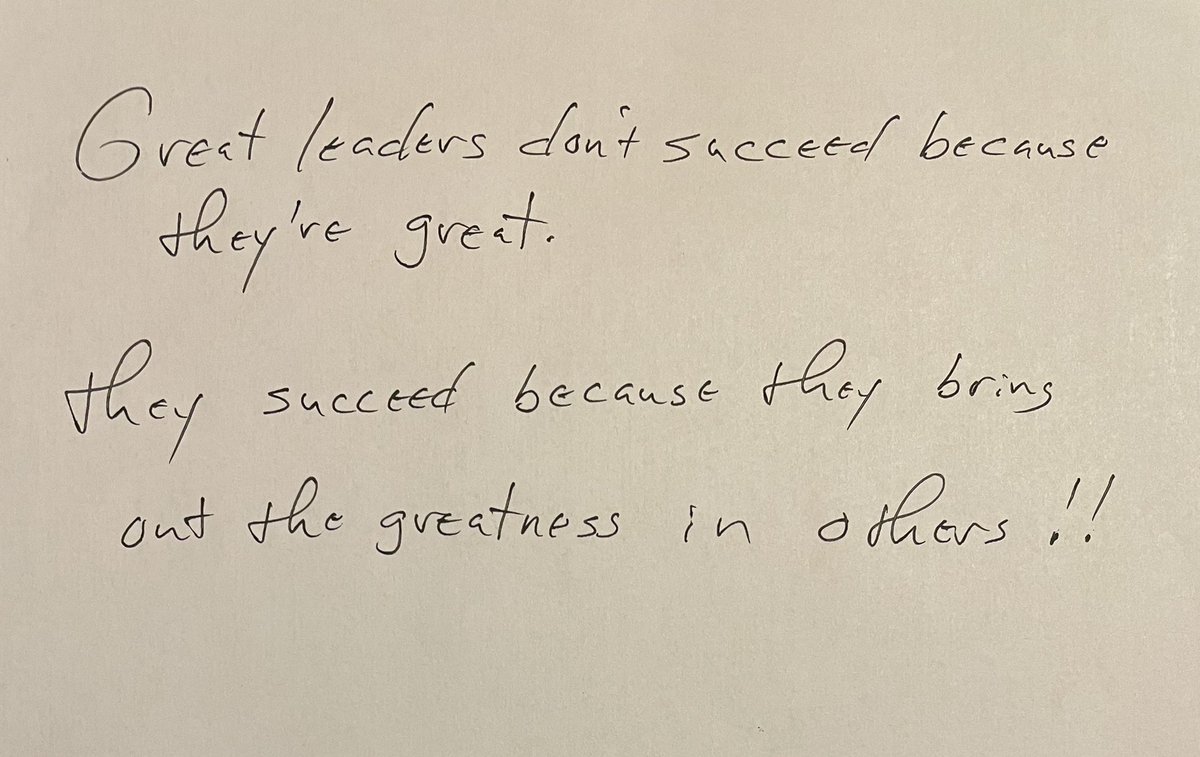 Great leaders don't succeed because
they're great.
they succeed because they bring
out the greatness in others!!